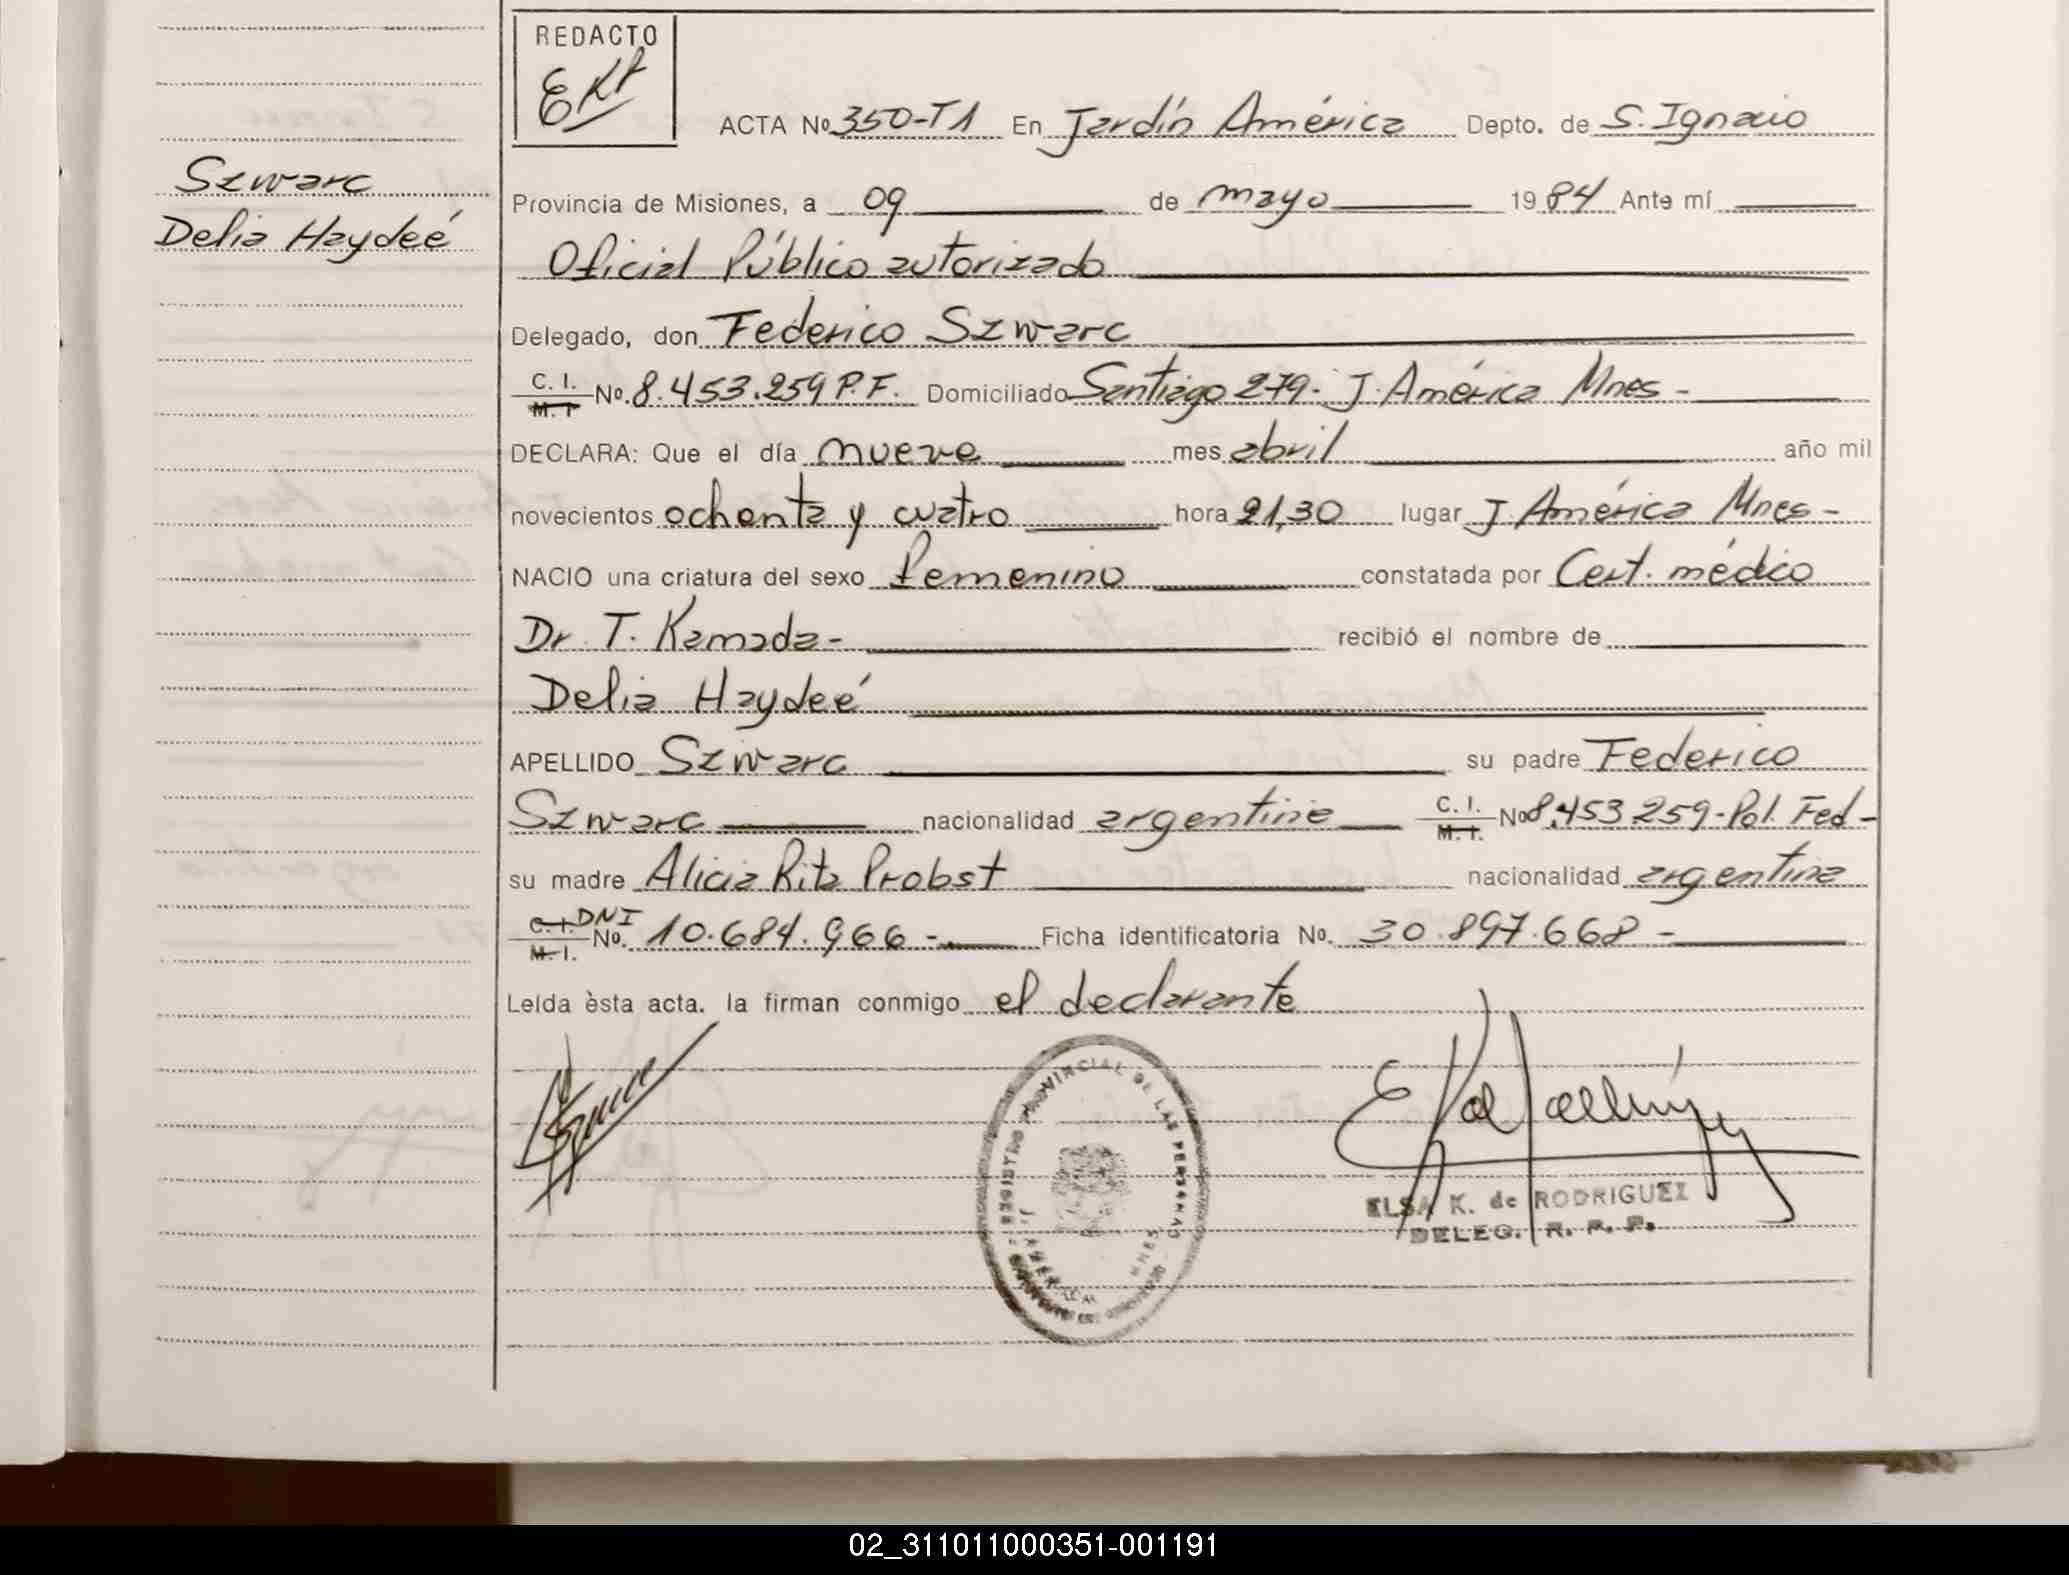 REDACTO
EKR
ACTA No. 350-T1 En Jardín América Depto. de S. Ignacio
Szwarc
Delia Haydeé
Provincia de Misiones, a 09 de mayo 1984 Ante mí
Oficial Público autorizado
Delegado, don Federico Szwarc
C. I. M. I No. 8.453.259 P.F. Domiciliado Santiago 279- J. América Mnes-
DECLARA: Que el día nueve mes abril año mil
novecientos ochenta y cuatro hora 21,30 lugar J. América Mnes-
NACIO una criatura del sexo femenino constatada por Cert. médico
Dr. T. Kamada- recibió el nombre de
Delia Haydeé
APELLIDO Szwarc su padre Federico
Szwarc nacionalidad argentina C. I. M. I. No 8.453.259-Pol. Fed-
su madre Alicia Rita Probst nacionalidad argentina
C. I. DNI M. I. No. 10.684.966- Ficha identificatoria No. 30.897.668-
Leída èsta acta. la firman conmigo el declarante
REGISTRO PROVINCIAL DE LAS PERSONAS
MNES
ELSA K. de RODRIGUEZ
DELEG. R. P. P.
02_311011000351-001191